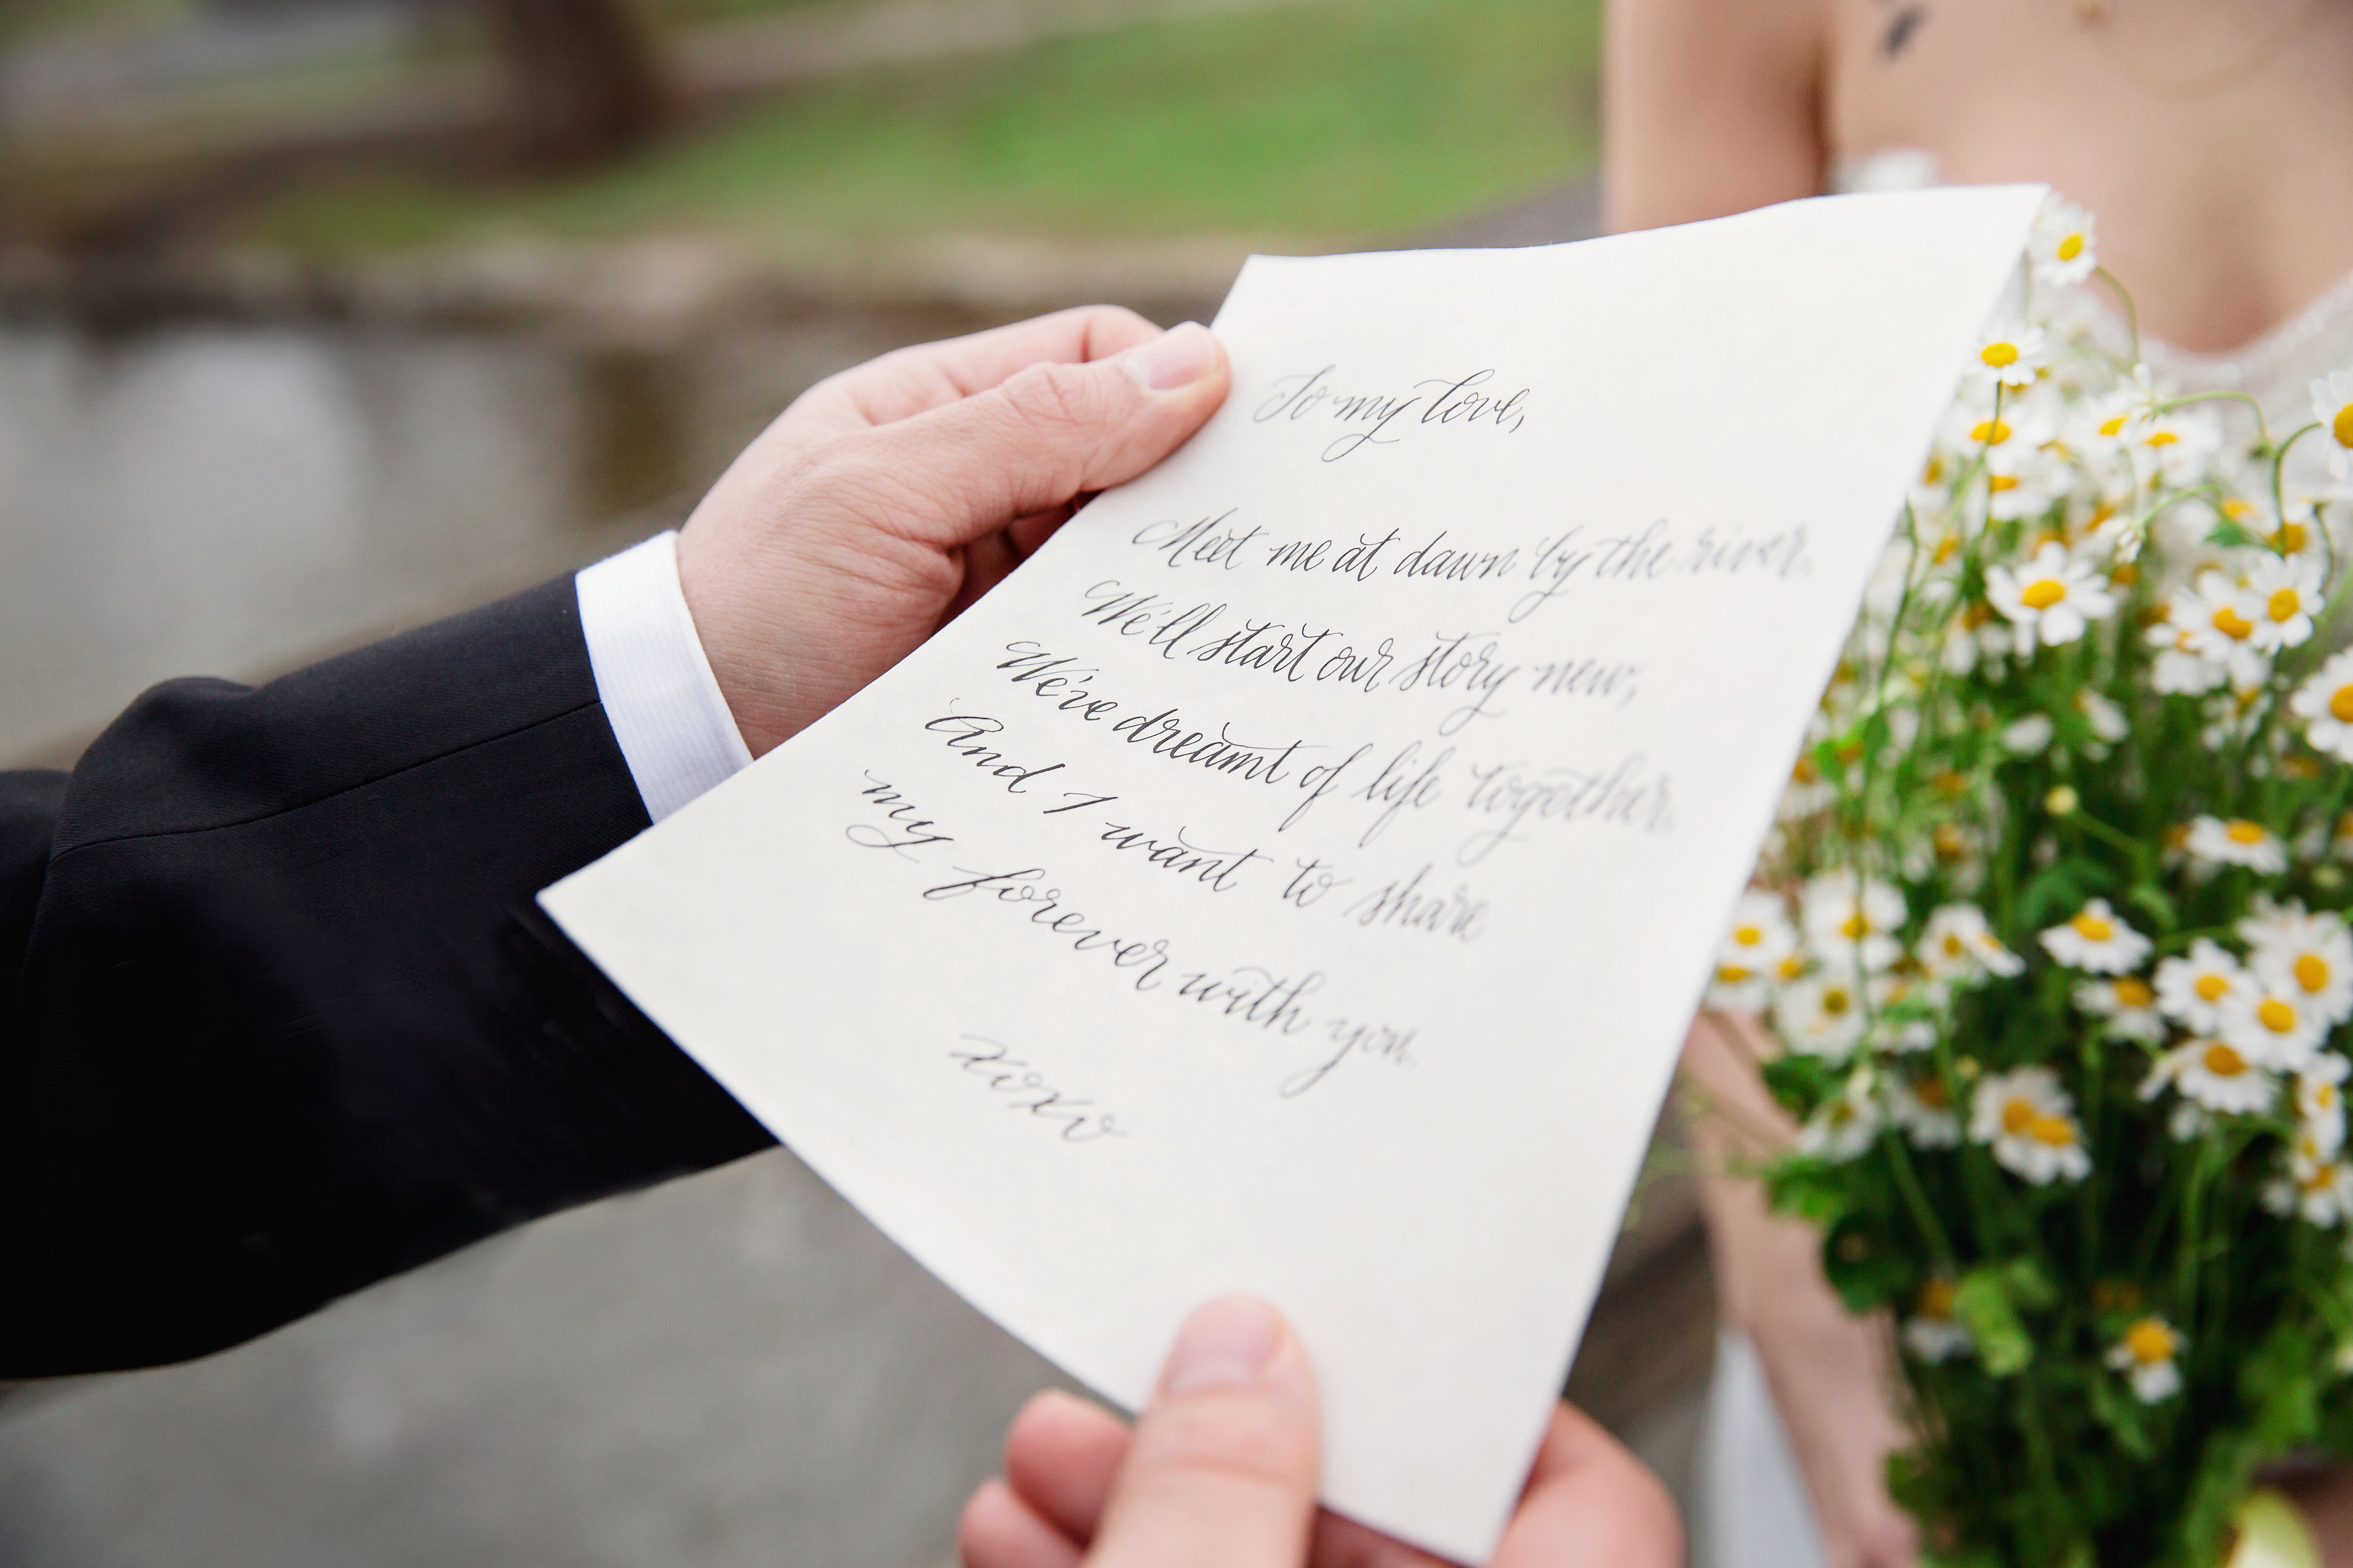 To my love,
Meet me at dawn by the river.
We'll start our story new;
We've dreamt of life together.
And I want to share
my forever with you.
xoxo